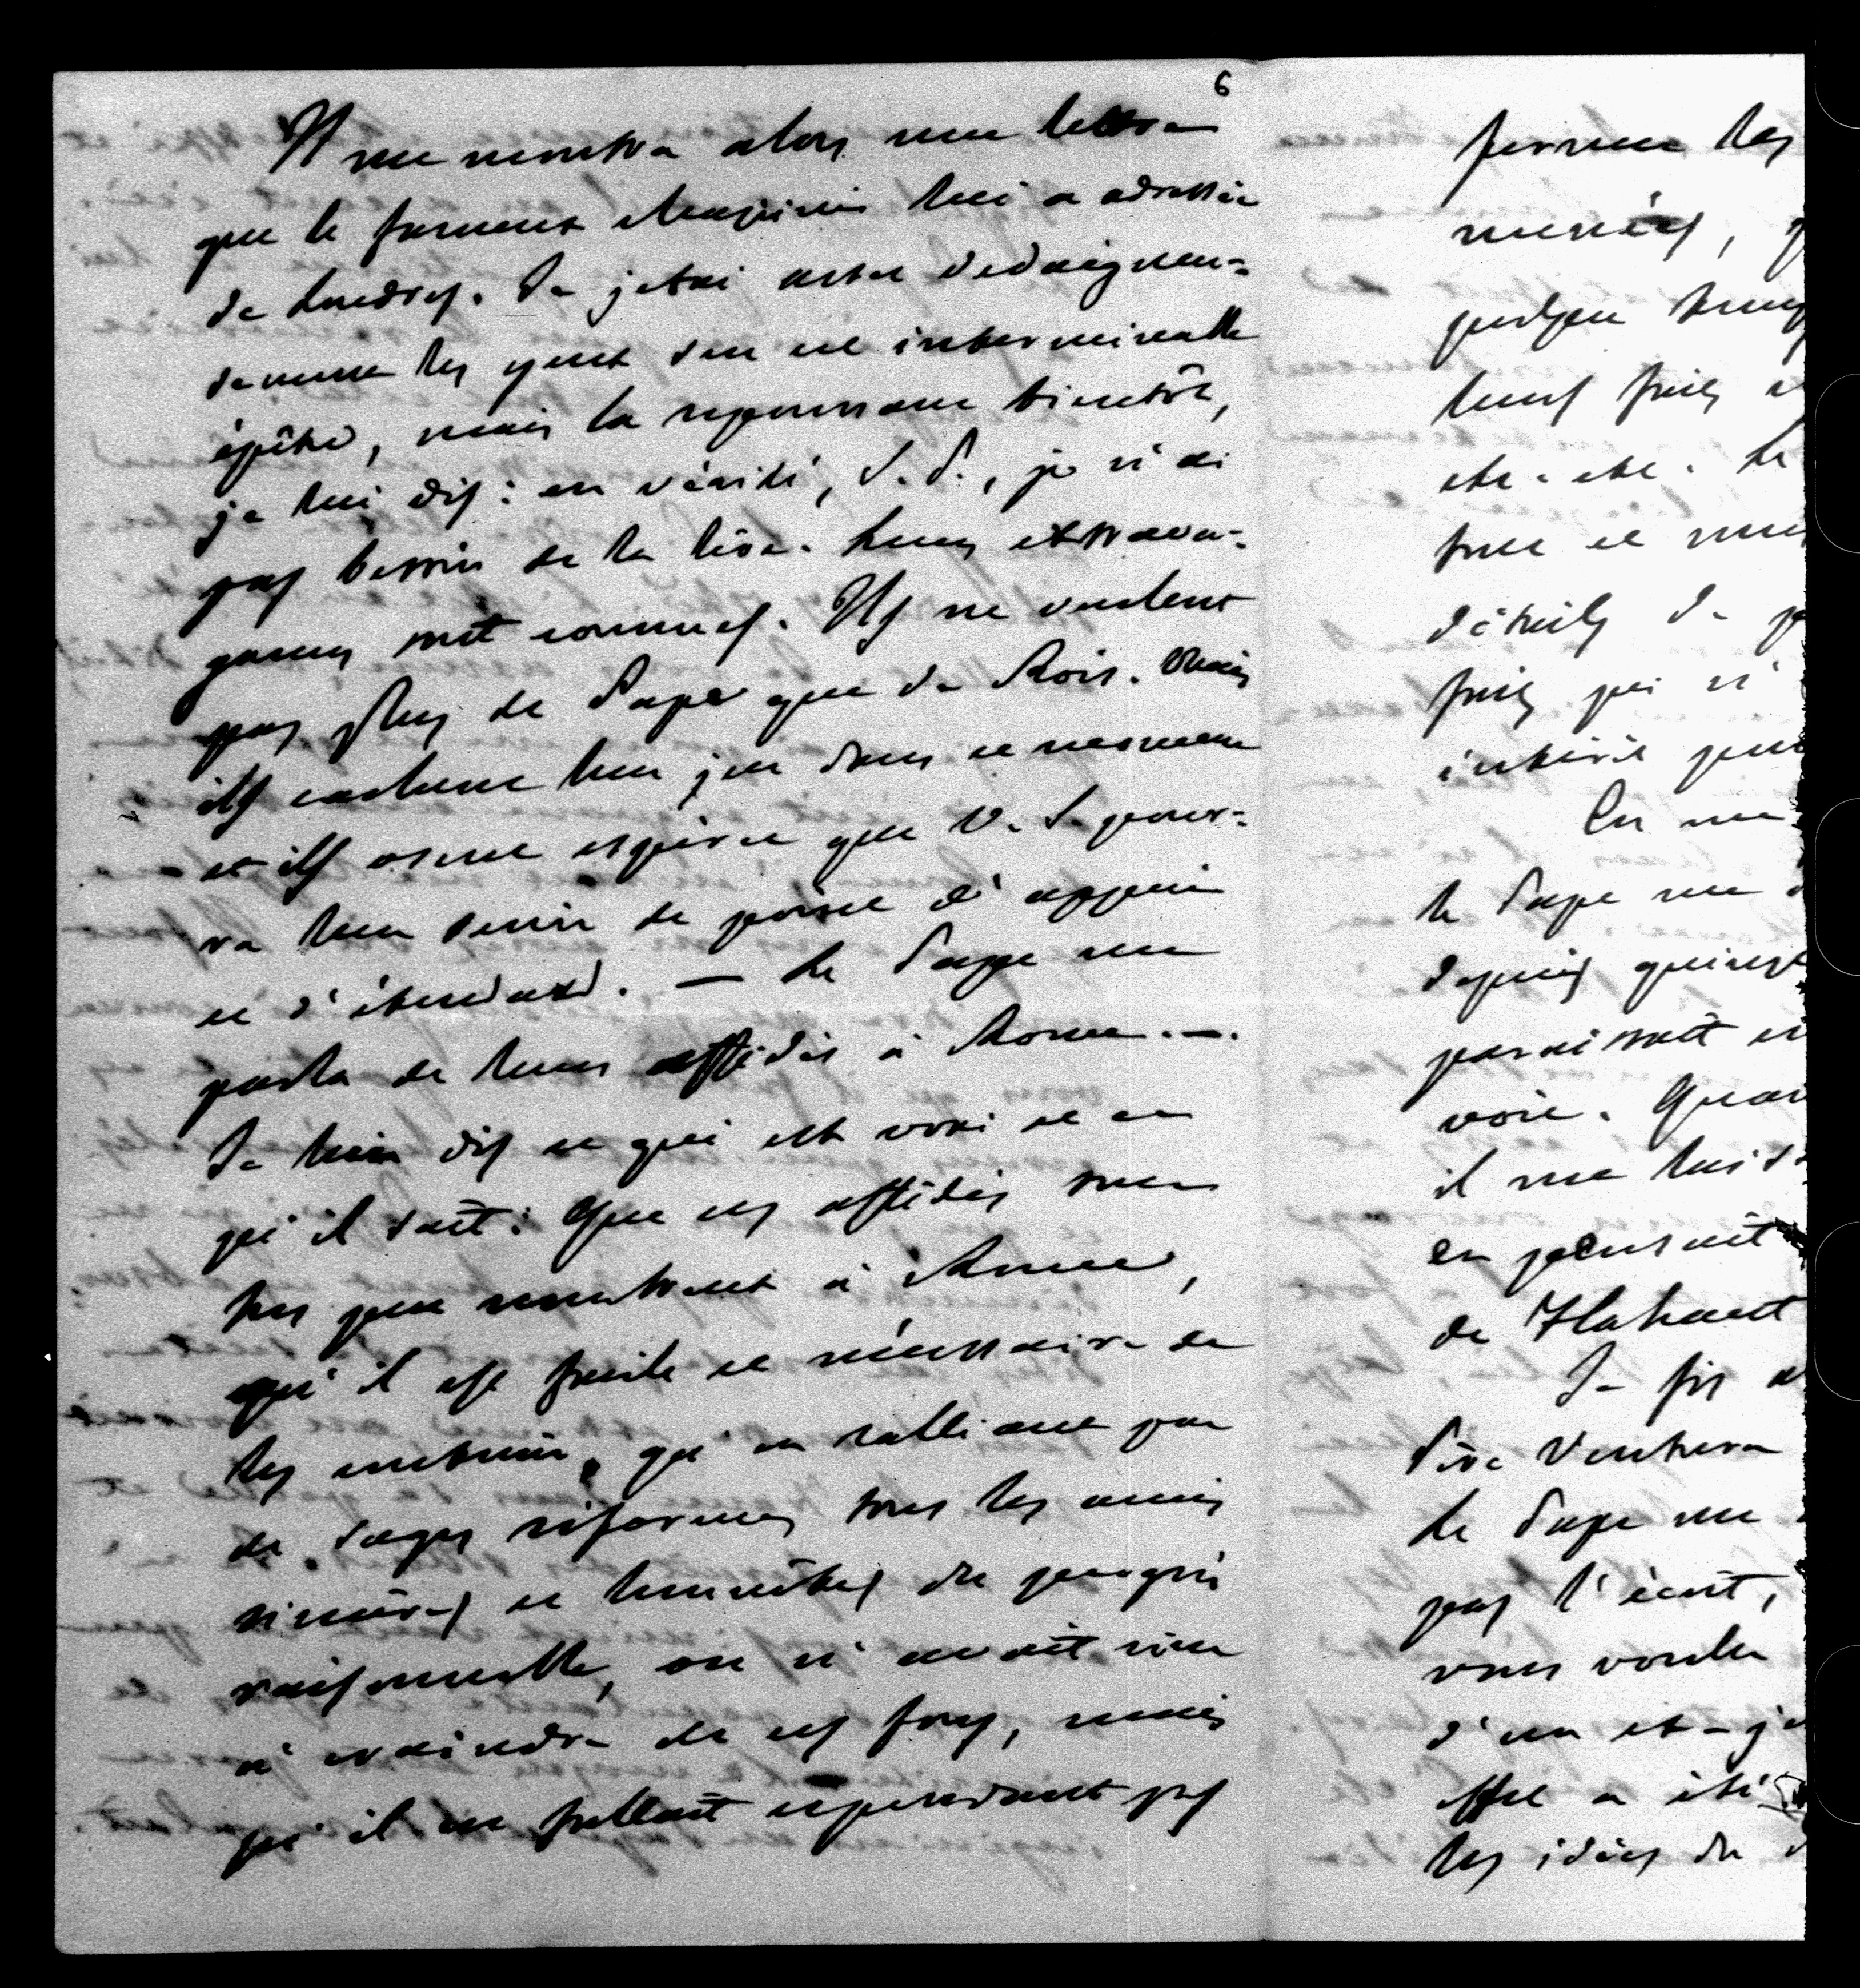 6
Il me montra alors une lettre
que le fameux Mazzini lui a adressée
de Londres. Je jetai assez dedaigneu-
sement les yeux sur cet interminable
épître, mais la repoussant bientôt,
je lui dis: en vérité, S. P., je n'ai
pas besoin de la lire. Leurs extrava-
gances sont connues. Ils ne veulent
pas plus de Pape que de Rois. Mais
ils cachent leur jeu dans ce moment
et ils osent espérer que V. S. pour-
ra leur servir de point d'appui
et d'étendard. — Le Pape me
parla de leurs affidés à Rome. —.
Je lui dis ce qui est vrai et ce
qu'il sait: Que ces affidés sont
peu nombreux à Rome,
qu'il est facile et nécessaire de
les contenir, qu'en ralliant par
de sages réformes tous les amis
sincères et honnêtes du progrès
raisonnable, on n'avait rien
à craindre de ces fous, mais
qu'il ne fallait cependant pas
les
menées,
leurs
etc. etc. Le
et
détails de
qui n'
intérêt pour
En me
le Pape me
depuis
paraissait
voie. Quan
il me
en pensait
de Flahault
Je fis
Père Ventura
Le Pape me
pas l'écrit,
vous voulez
d'un et-je
effet a été
les idées du